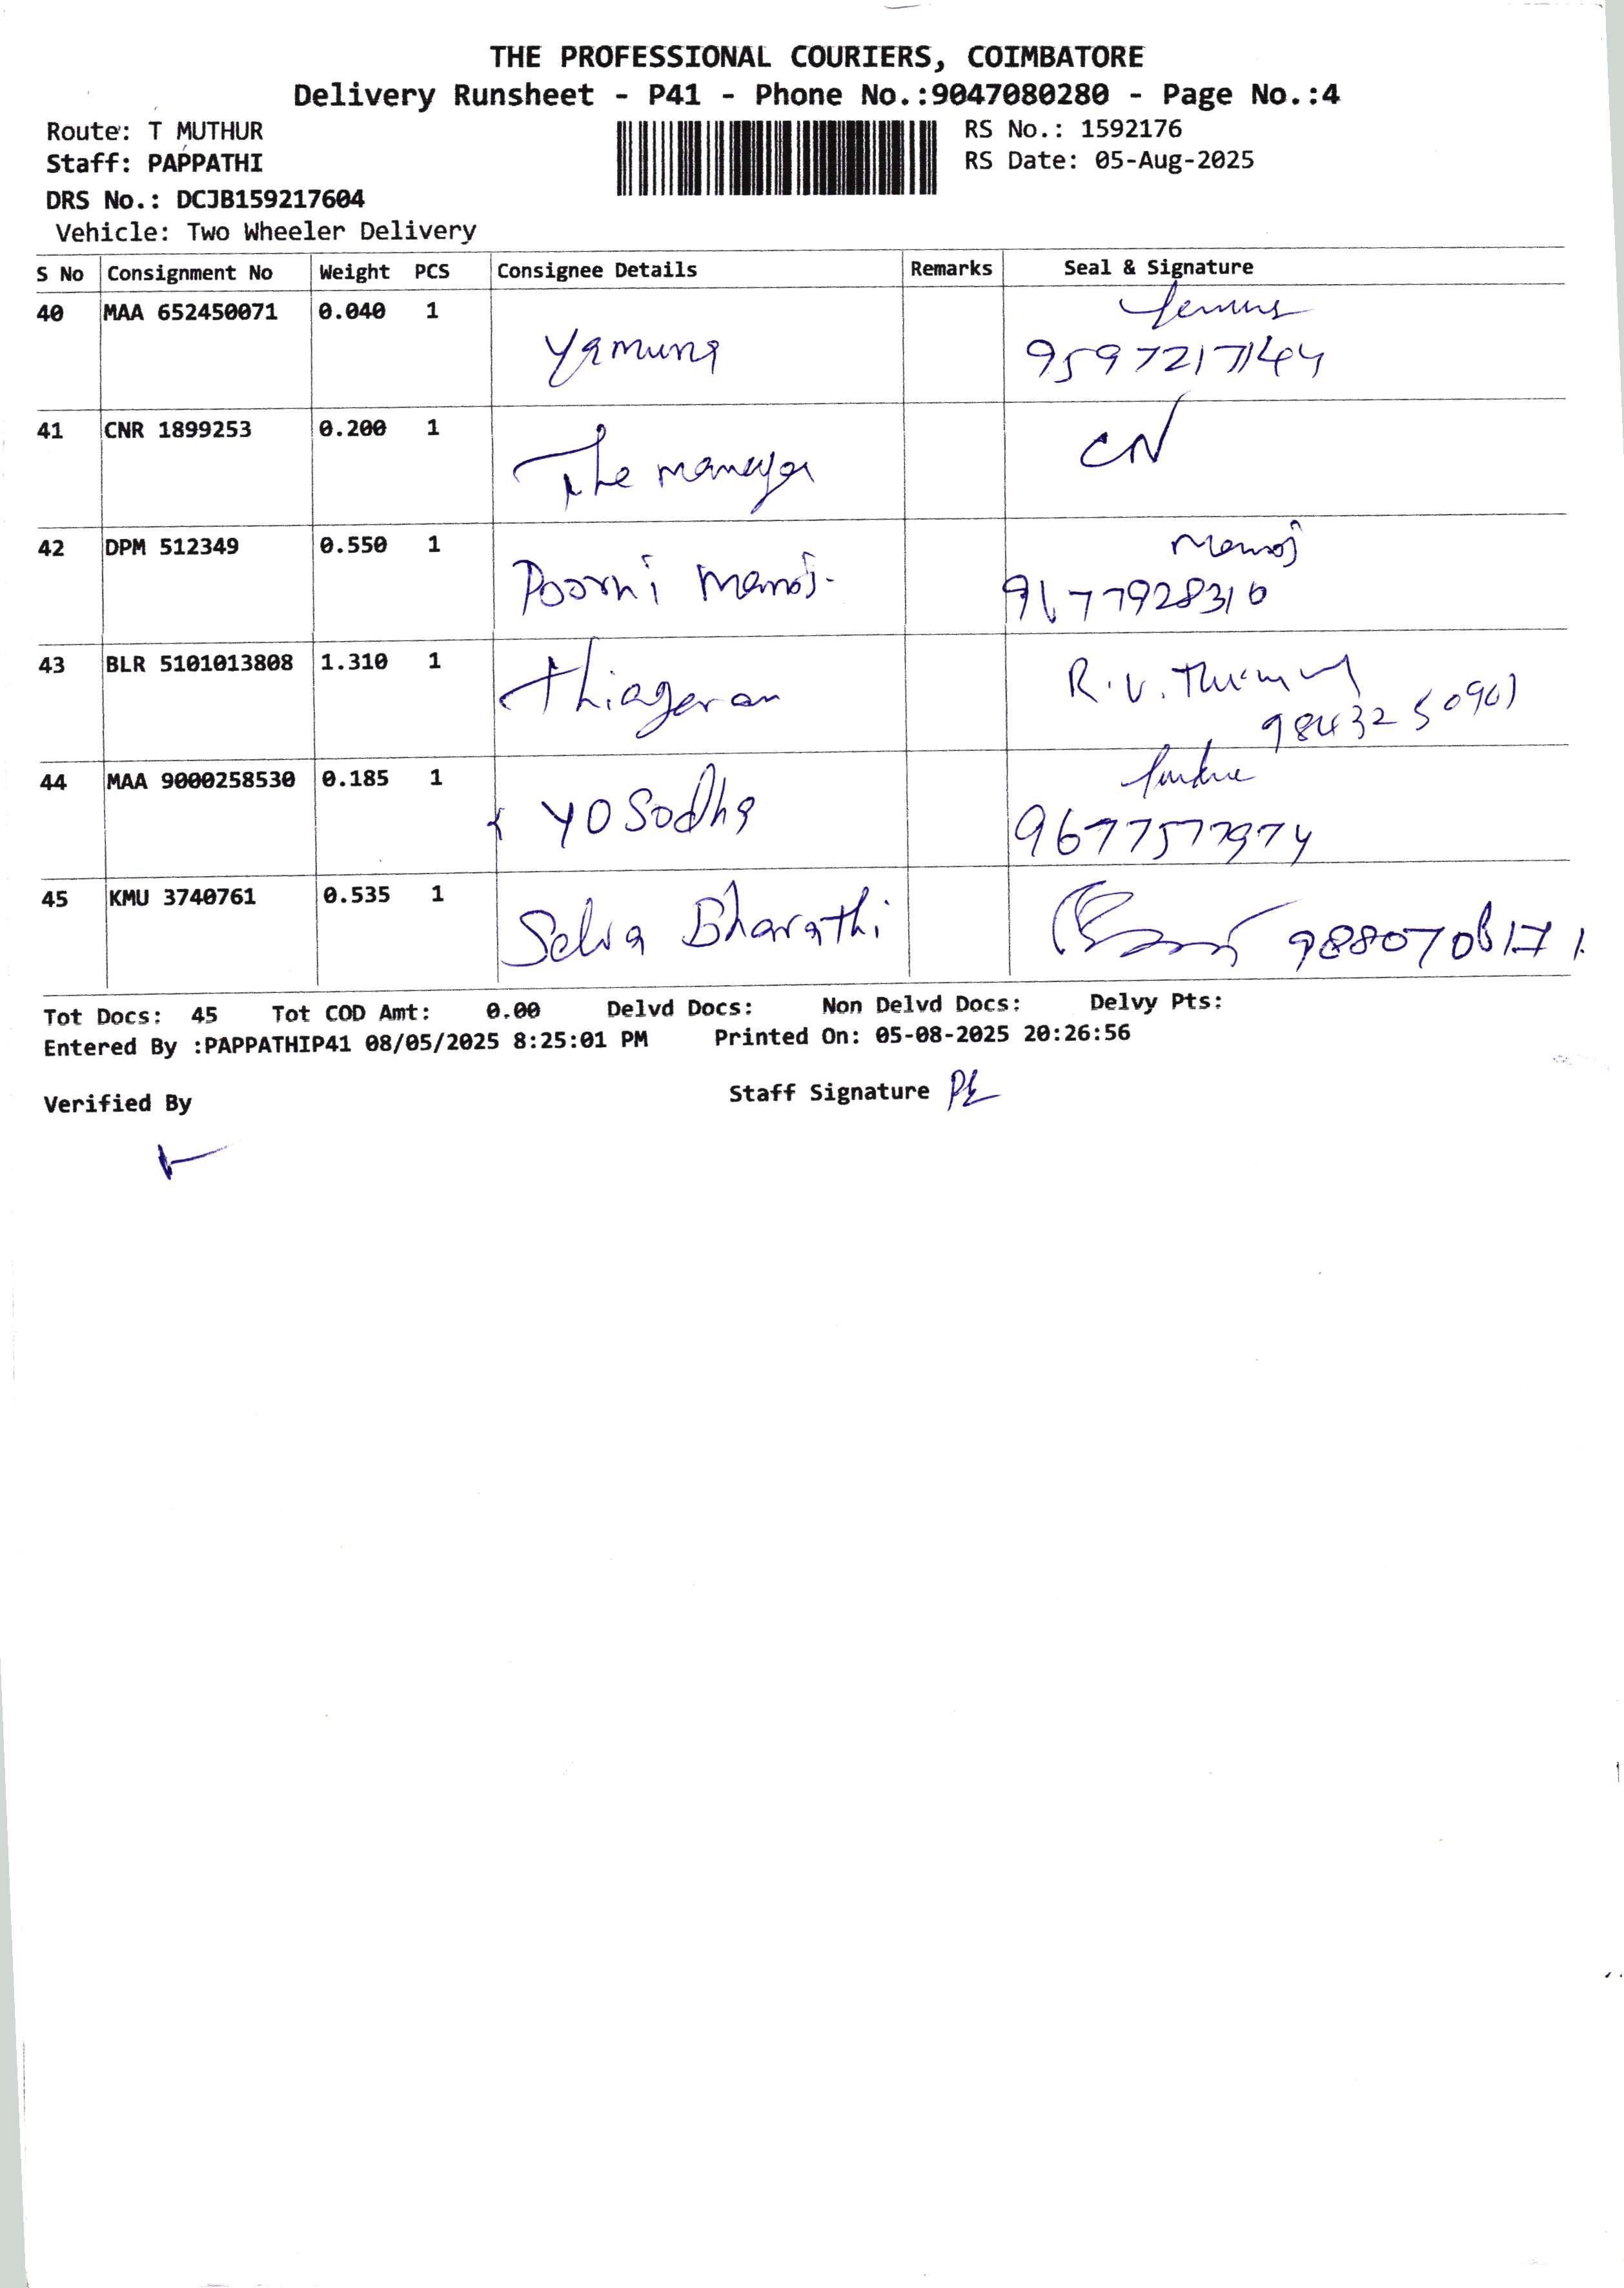 THE PROFESSIONAL COURIERS, COIMBATORE
Delivery Runsheet - P41 - Phone No.:9047080280 - Page No.:4
Route: T MUTHUR
RS No.: 1592176
Staff: PAPPATHI
RS Date: 05-Aug-2025
DRS No.: DCJB159217604
Vehicle: Two Wheeler Delivery
S No Consignment No Weight PCS Consignee Details Remarks Seal & Signature
40 MAA 652450071 0.040 1 Yamuna
9597217144
41 CNR 1899253 0.200 1 The manager CN
42 DPM 512349 0.550 1 Poorni Manoj. Manoj
9677928310
43 BLR 5101013808 1.310 1 Thiageran R.V.
9843250901
44 MAA 9000258530 0.185 1 Yosodha
9677577974
45 KMU 3740761 0.535 1 Selva Bharathi
Tot Docs: 45 Tot COD Amt: 0.00 Delvd Docs: Non Delvd Docs: Delvy Pts:
Entered By :PAPPATHIP41 08/05/2025 8:25:01 PM Printed On: 05-08-2025 20:26:56
Verified By Staff Signature